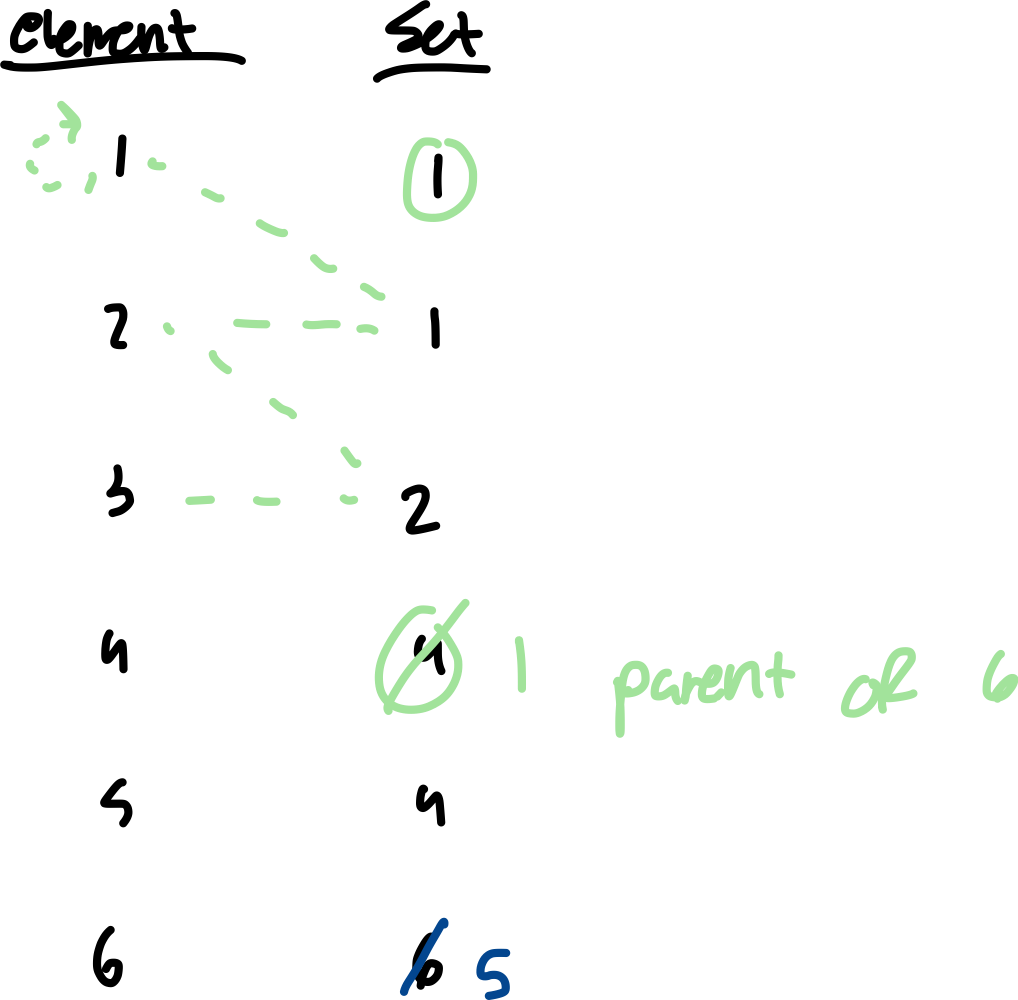 element set
1 1
2 1
3 2
4 4 1 parent OR 6
5 4
6 6 5